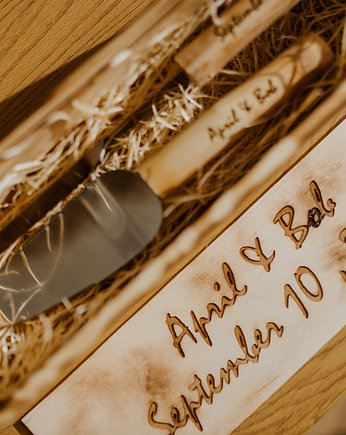 September
April & Bob
April & Bob
September 10